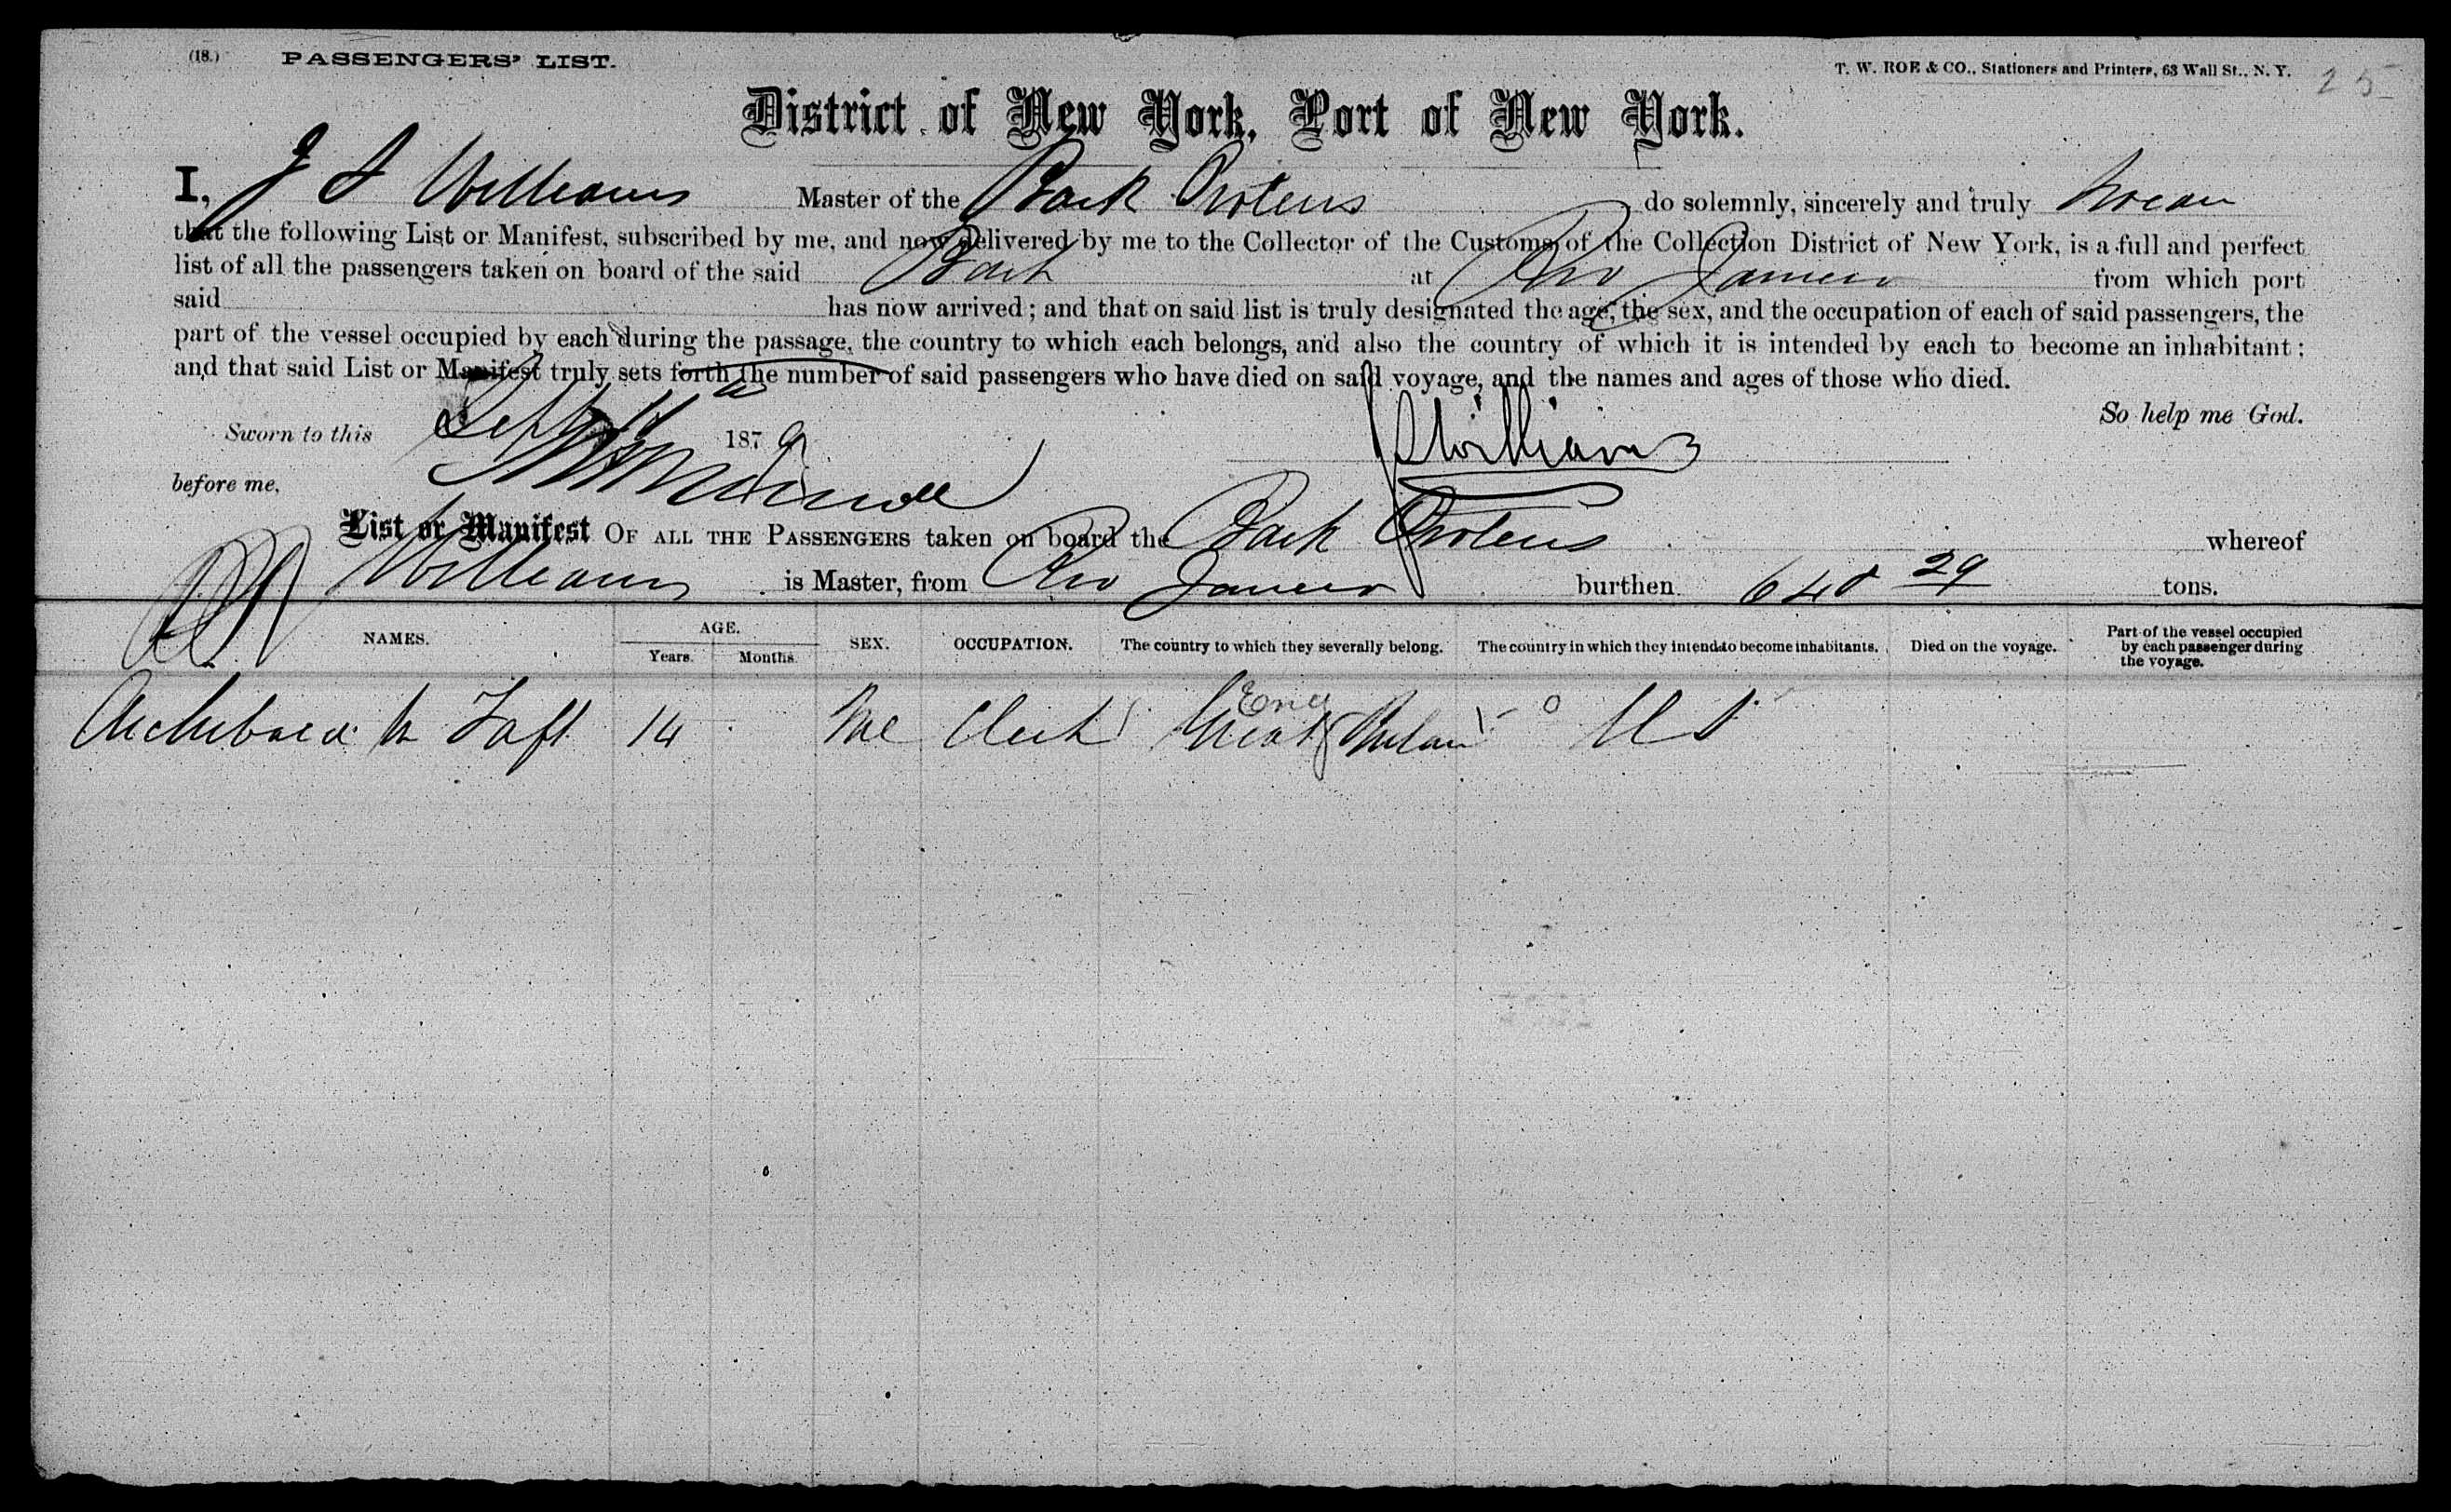 (18.) PASSENGERS' LIST. T. W. ROE & CO., Stationers and Printers, 63 Wall St., N. Y. 25
District of New York, Port of New York.
I, J Williams Master of the Bark Proteus do solemnly, sincerely and truly swear
that the following List or Manifest, subscribed by me, and now delivered by me to the Collector of the Customs of the Collection District of New York, is a full and perfect
list of all the passengers taken on board of the said Bark at Rio Janeiro from which port
said has now arrived; and that on said list is truly designated the age, the sex, and the occupation of each of said passengers, the
part of the vessel occupied by each during the passage, the country to which each belongs, and also the country of which it is intended by each to become an inhabitant;
and that said List or Manifest truly sets forth the number of said passengers who have died on said voyage, and the names and ages of those who died.
So help me God.
Sworn to this Sept 1879 Williams
before me,
List or Manifest OF ALL THE PASSENGERS taken on board the Bark Proteus whereof
Williams is Master, from Rio Janeiro burthen 640 29 tons.
NAMES. AGE. Years. Months. SEX. OCCUPATION. The country to which they severally belong. The country in which they intend to become inhabitants. Died on the voyage. Part of the vessel occupied by each passenger during the voyage.
Eng
Archibald Taft 14 Me Clerk Great U S